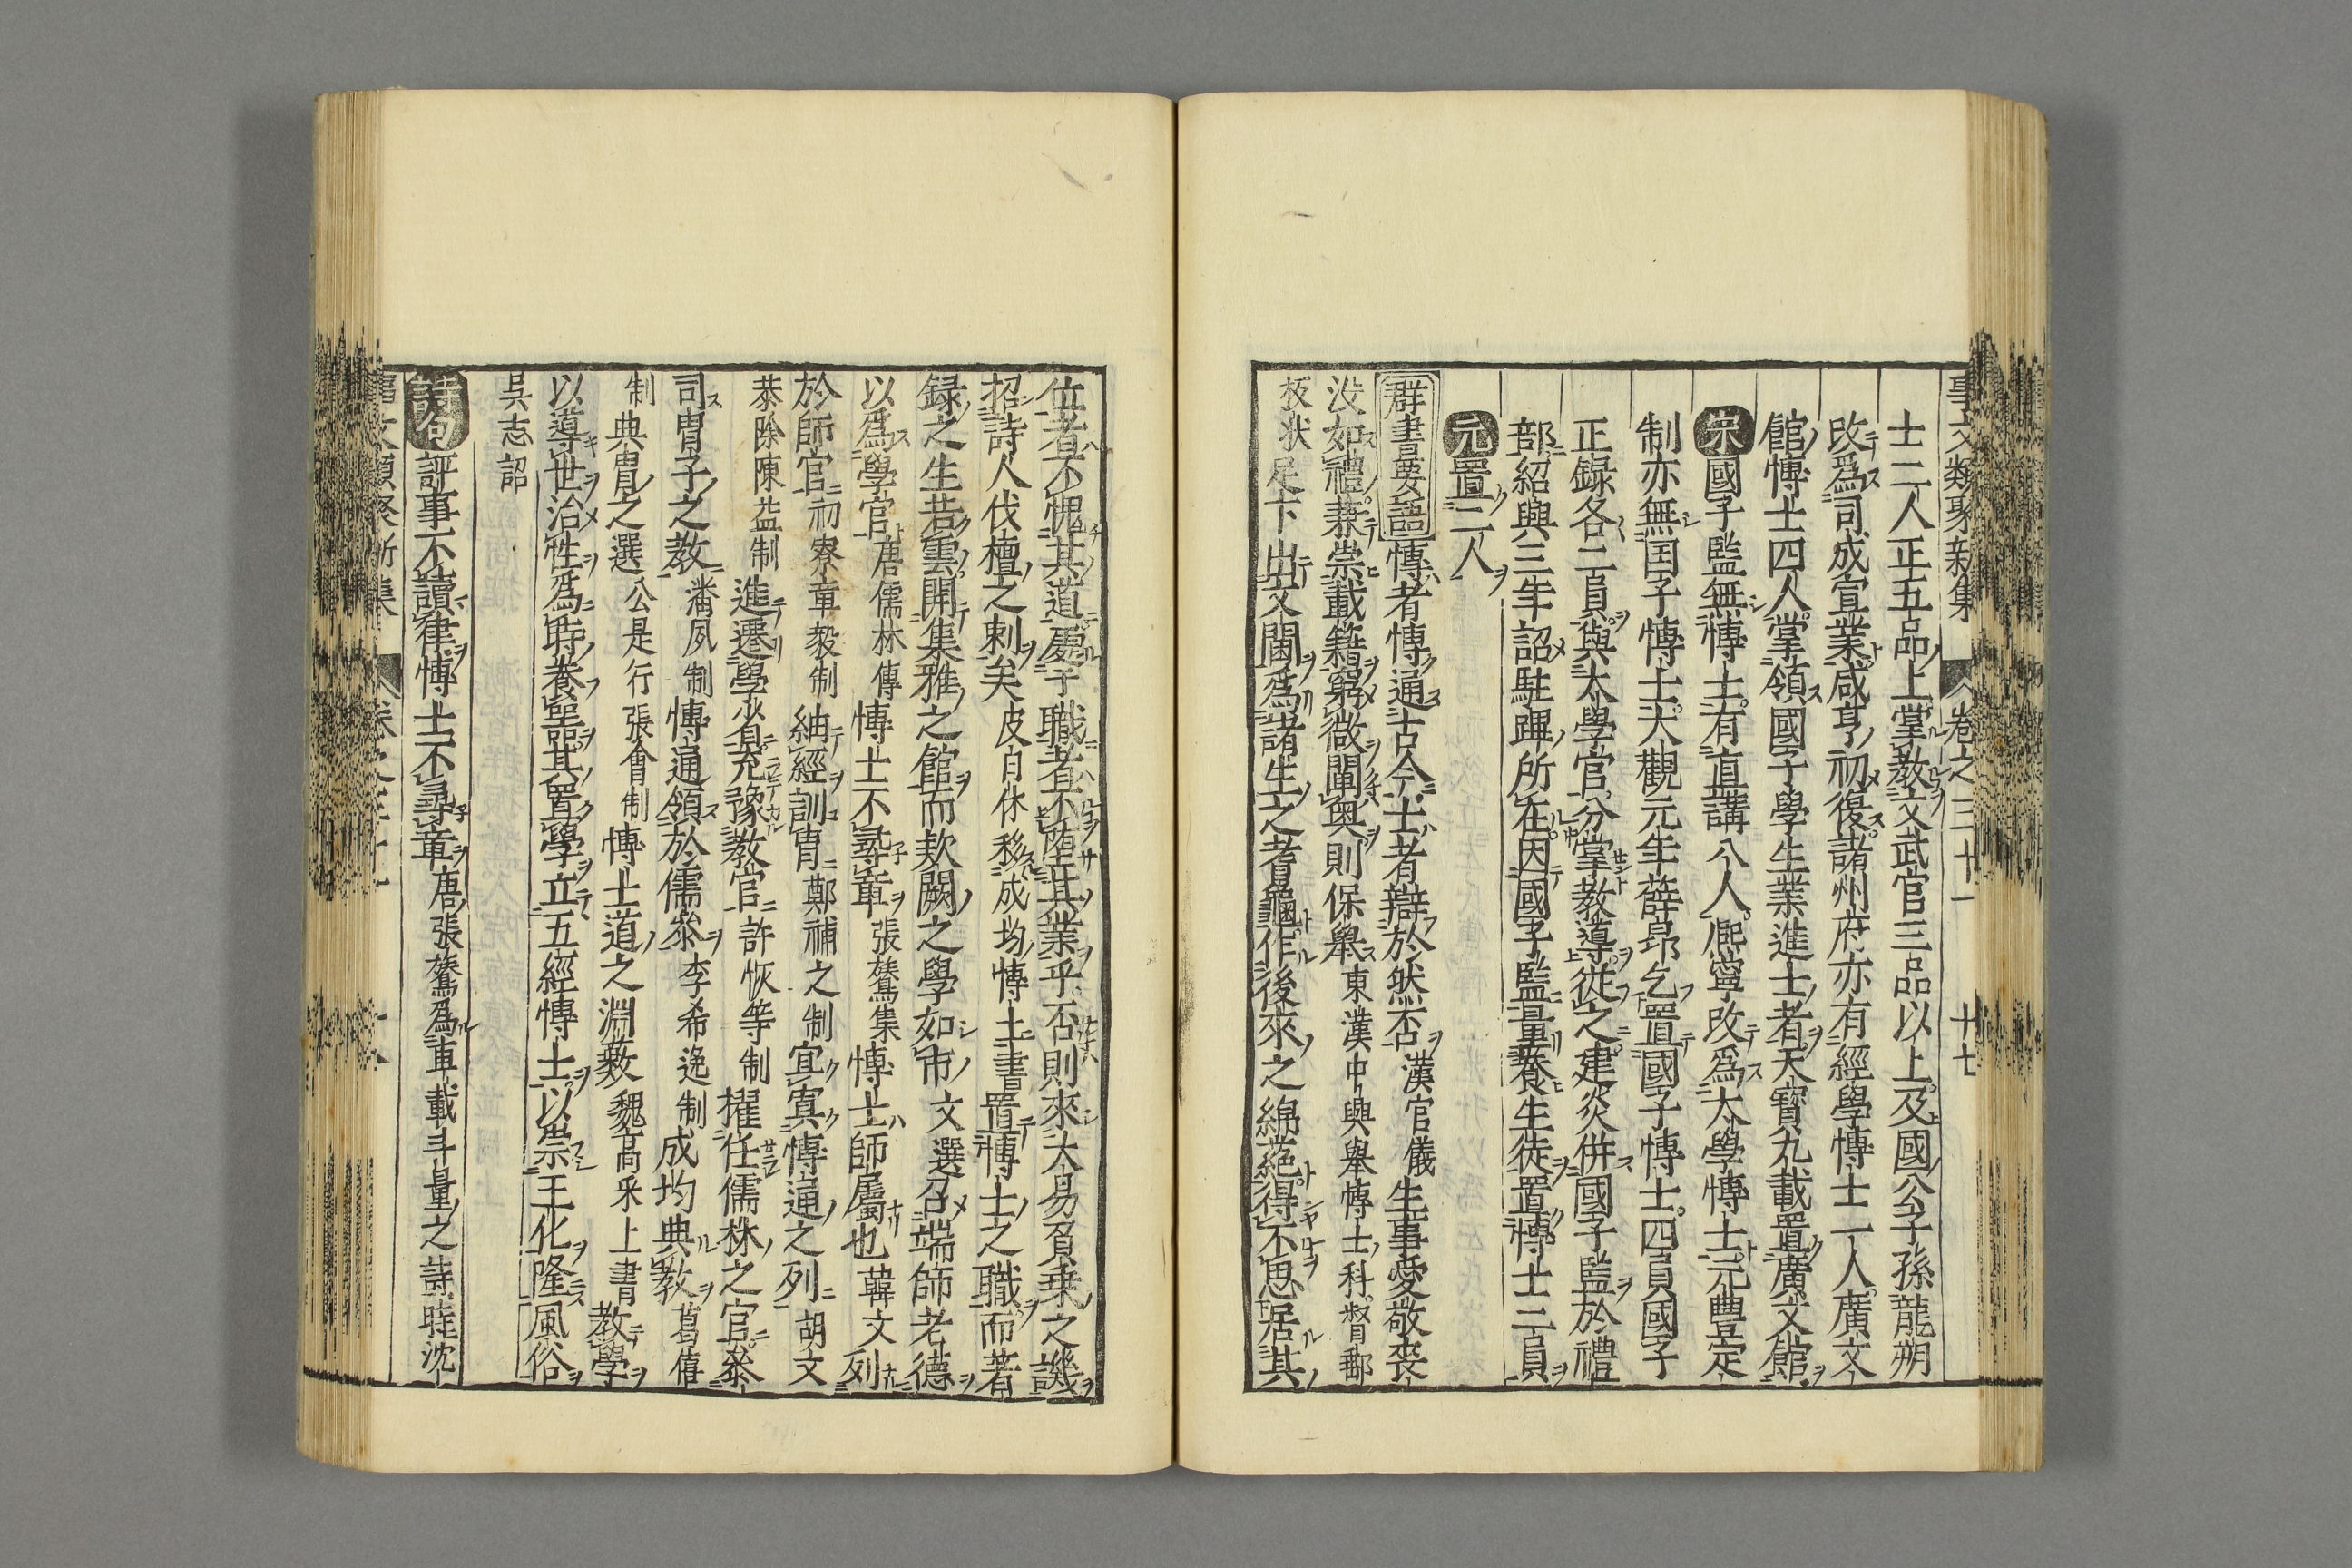 事文類聚新集 卷之三十一 十七
士二人正五品上掌教文武官三品以上及國公子孫龍朔
改爲司成宣業咸亨初復諸州府亦有經學博士一人廣文
館博士四人掌領國子學生業進士者天寶九載置廣文館
宋國子監無博士有直講八人熈寧改爲大學博士元豊定
制亦無国子博士大觀元年薛昻乞置國子博士四員國子
正録各二員與太學官分掌教導從之建炎併國子監於禮
部紹興三年詔駐蹕所在因國子監量養生徒置博士二員
元置二人
群書要語博者博通古今士者辯於然否漢官儀生事愛敬喪
没如禮兼崇載籍窮微闡奧則保舉東漢中興舉博士科督郵
板状足下出文閫爲諸生之蓍龜作後來之綿蕝得不思居其
位者不愧其道處于職者不墮其業乎否則來大易負乗之譏
招詩人伐檀之刺矣皮日休移成均博士書置博士之職而著
録之生若雲開集雅之館而欵闕之學如市文選召端師老德
以爲學官唐儒林傳博士不尋章張鷟集博士師屬也韓文列
於師官初寮章毅制紬經訓冑鄭補之制宜寘博通之列胡文
恭除陳益制進遷學省充豫教官許恢等制擢任儒林之官叅
司冑子之教潘夙制博通領於儒叅李希逸制成均典教葛僖
制典冑之選公是行張會制博士道之淵藪魏髙釆上書教學
以導世治性爲時養噐其置學立五經博士以崇王化隆風俗
吳志詔
詩句評事不讀律博士不尋章唐張鷟爲車載斗量之詩時沈